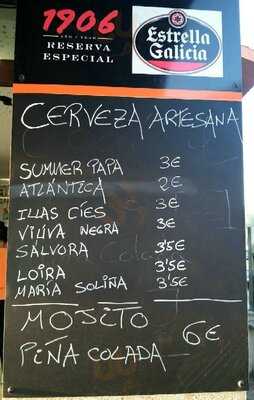 1906
RESERVA
ESPECIAL
Estrella
Galicia
CERVEZA ARTESANA
SUMMER PAPA 3€
ATLÁNTICA 2€
ILLAS CÍES 3€
VIÚVA NEGRA 3€
SÁLVORA 3'5€
LOIRA 3'5€
MARÍA SOLIÑA 3'5€
MOJITO
PIÑA COLADA 6€